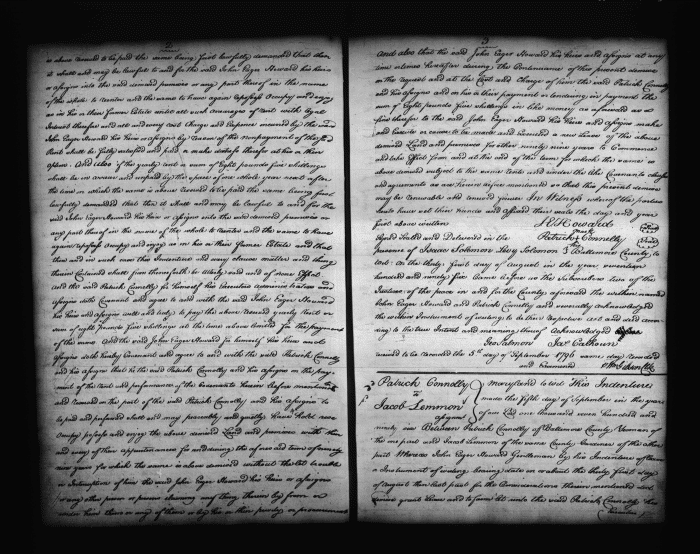 2
is above reserved to be paid the same being first lawfully demanded that then
it shall and may be lawful to and for the said John Eager Howard his heirs
or assigns into the said demised premises or any part thereof in the name
of the whole to reenter and the same to have again repossess Occupy and enjoy
as in his or their former Estate until all such arrears of rent with
Interest thereon and all and every cost Charge and Expence incurred by the said
John Eager Howard his Heirs or assigns by reason of the nonpayment of the said
Rent shall be fully satisfied and paid
And Also if the yearly rent or sum of Eight pounds five shillings
shall be in arrear and unpaid by the space of one whole year next after
the time in which the same is above reserved to be paid the same being first
lawfully demanded that then it shall and may be lawful to and for the
said John Eager Howard his heirs or assigns into the said demised premises or
any part thereof in the name of the whole to reenter and the same to have
again repossess Occupy and enjoy as in his or their former Estate and that
then and in such case this Indenture and every clause matter and thing
therein Contained shall from thenceforth be utterly void and of none Effect
And the said Patrick Connelly for himself his Executors administrators and
assigns doth Covenant and agree to and with the said John Eager Howard
his heirs and assigns well and truly to pay the above reserved yearly Rent or
sum of eight pounds five shillings at the time above limited for the payment
of the same And the said John Eager Howard for himself his heirs and
assigns doth hereby Covenant and agree to and with the said Patrick Connelly
and his assigns that he the said Patrick Connelly and his assigns on the pay-
ment of the rent and performance of the Covenants herein before mentioned
and reserved on the part of the said Patrick Connelly and his assigns to
be paid and performed shall and may peaceably and quietly have hold use
occupy possess and enjoy the above demised Land and premises with them
and every of their appurtenances for and during the aforesaid term of ninety
nine years for which the same is above demised without the let trouble
or interruption of him the said John Eager Howard his heirs or assigns
or any other person or persons claiming by from or
under him them or any of them
3
and also that the said John Eager Howard his heirs and assigns at any
time or times hereafter during the Continuance of this present demise
on the request and at the Cost and Charge of him the said Patrick Connelly
and his assigns and on his or their payment or tendering in payment the
sum of Eight pounds five shillings in like money as aforesaid as a
fine therefor to the said John Eager Howard his Heirs and assigns make
and execute or cause to be made and executed a new lease of the above
demised Land and premises for other ninety nine years to Commence
and take effect from and at the end of the term for which the same is
above demised subject to the same rent and under the like Covenants
and agreements as are herein before mentioned so that this present demise
may be renewable and renewed forever In Witness whereof the parties
hereto have set their hands and affixed their seals the day and year
first above written J E Howard
mark
Signed Sealed and Delivered in the Patrick Connelly
presence of Isaac Solomon Levy Solomon } Baltimore County
to wit. On the thirty first day of August in the year seventeen
hundred and ninety six Came before us the subscribers two of the
Justices of the peace in and for the County aforesaid the within named
John Eager Howard and Patrick Connelly and severally acknowledged
the within Instrument of writing to be their respective Act and deed accor-
ding to the true Intent and meaning thereof Acknowledged before
Geo Salmon Jas Calhoun
received to be recorded the 5th day of September 1796 same day recorded
and Examined Wm Gibson Clk
Patrick Connelly
to
Jacob Lemmon
assignment
Maryland to wit This Indenture
made the fifth day of September in the year
of our Lord one thousand seven hundred and
ninety six Between Patrick Connelly of Baltimore County Yeoman of
the one part and Jacob Lemmon of the same County of the other
part Whereas John Eager Howard Gentleman by his Indenture of Lease
or Instrument of writing bearing date on or about the thirty first day
of August then last past for the Considerations therein mentioned
grant demise and to farm let unto the said Patrick Connelly his
Executors